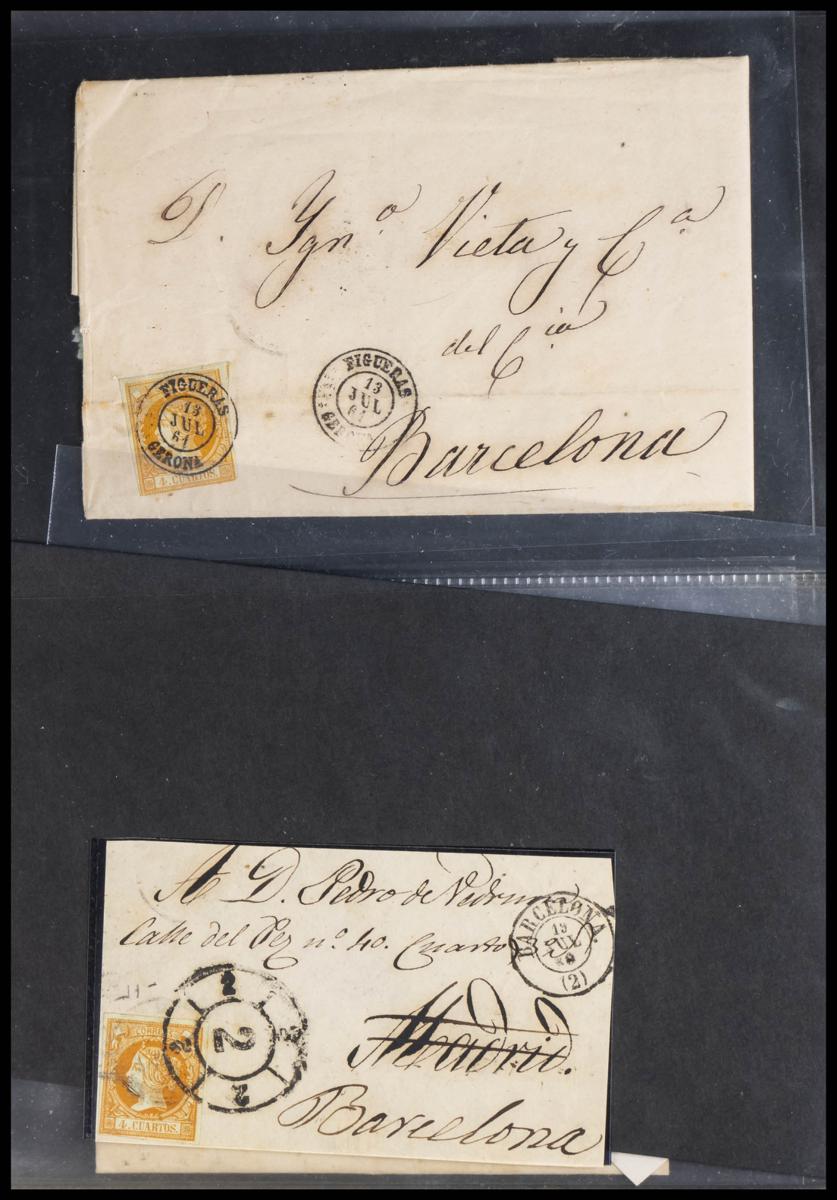 D. Ygn.º Vieta y C.ª
del C.ia
Barcelona
FIGUERAS
13
JUL
61
GERONA
4. CUARTOS.
FIGUERAS
13
JUL
61
A D. Pedro de
Calle del Pez nº 40. Cuarto
Madrid.
Barcelona
BARCELONA.
19
JUL
(2)
2
2
2
2
2
CORREOS
4. CUARTOS.